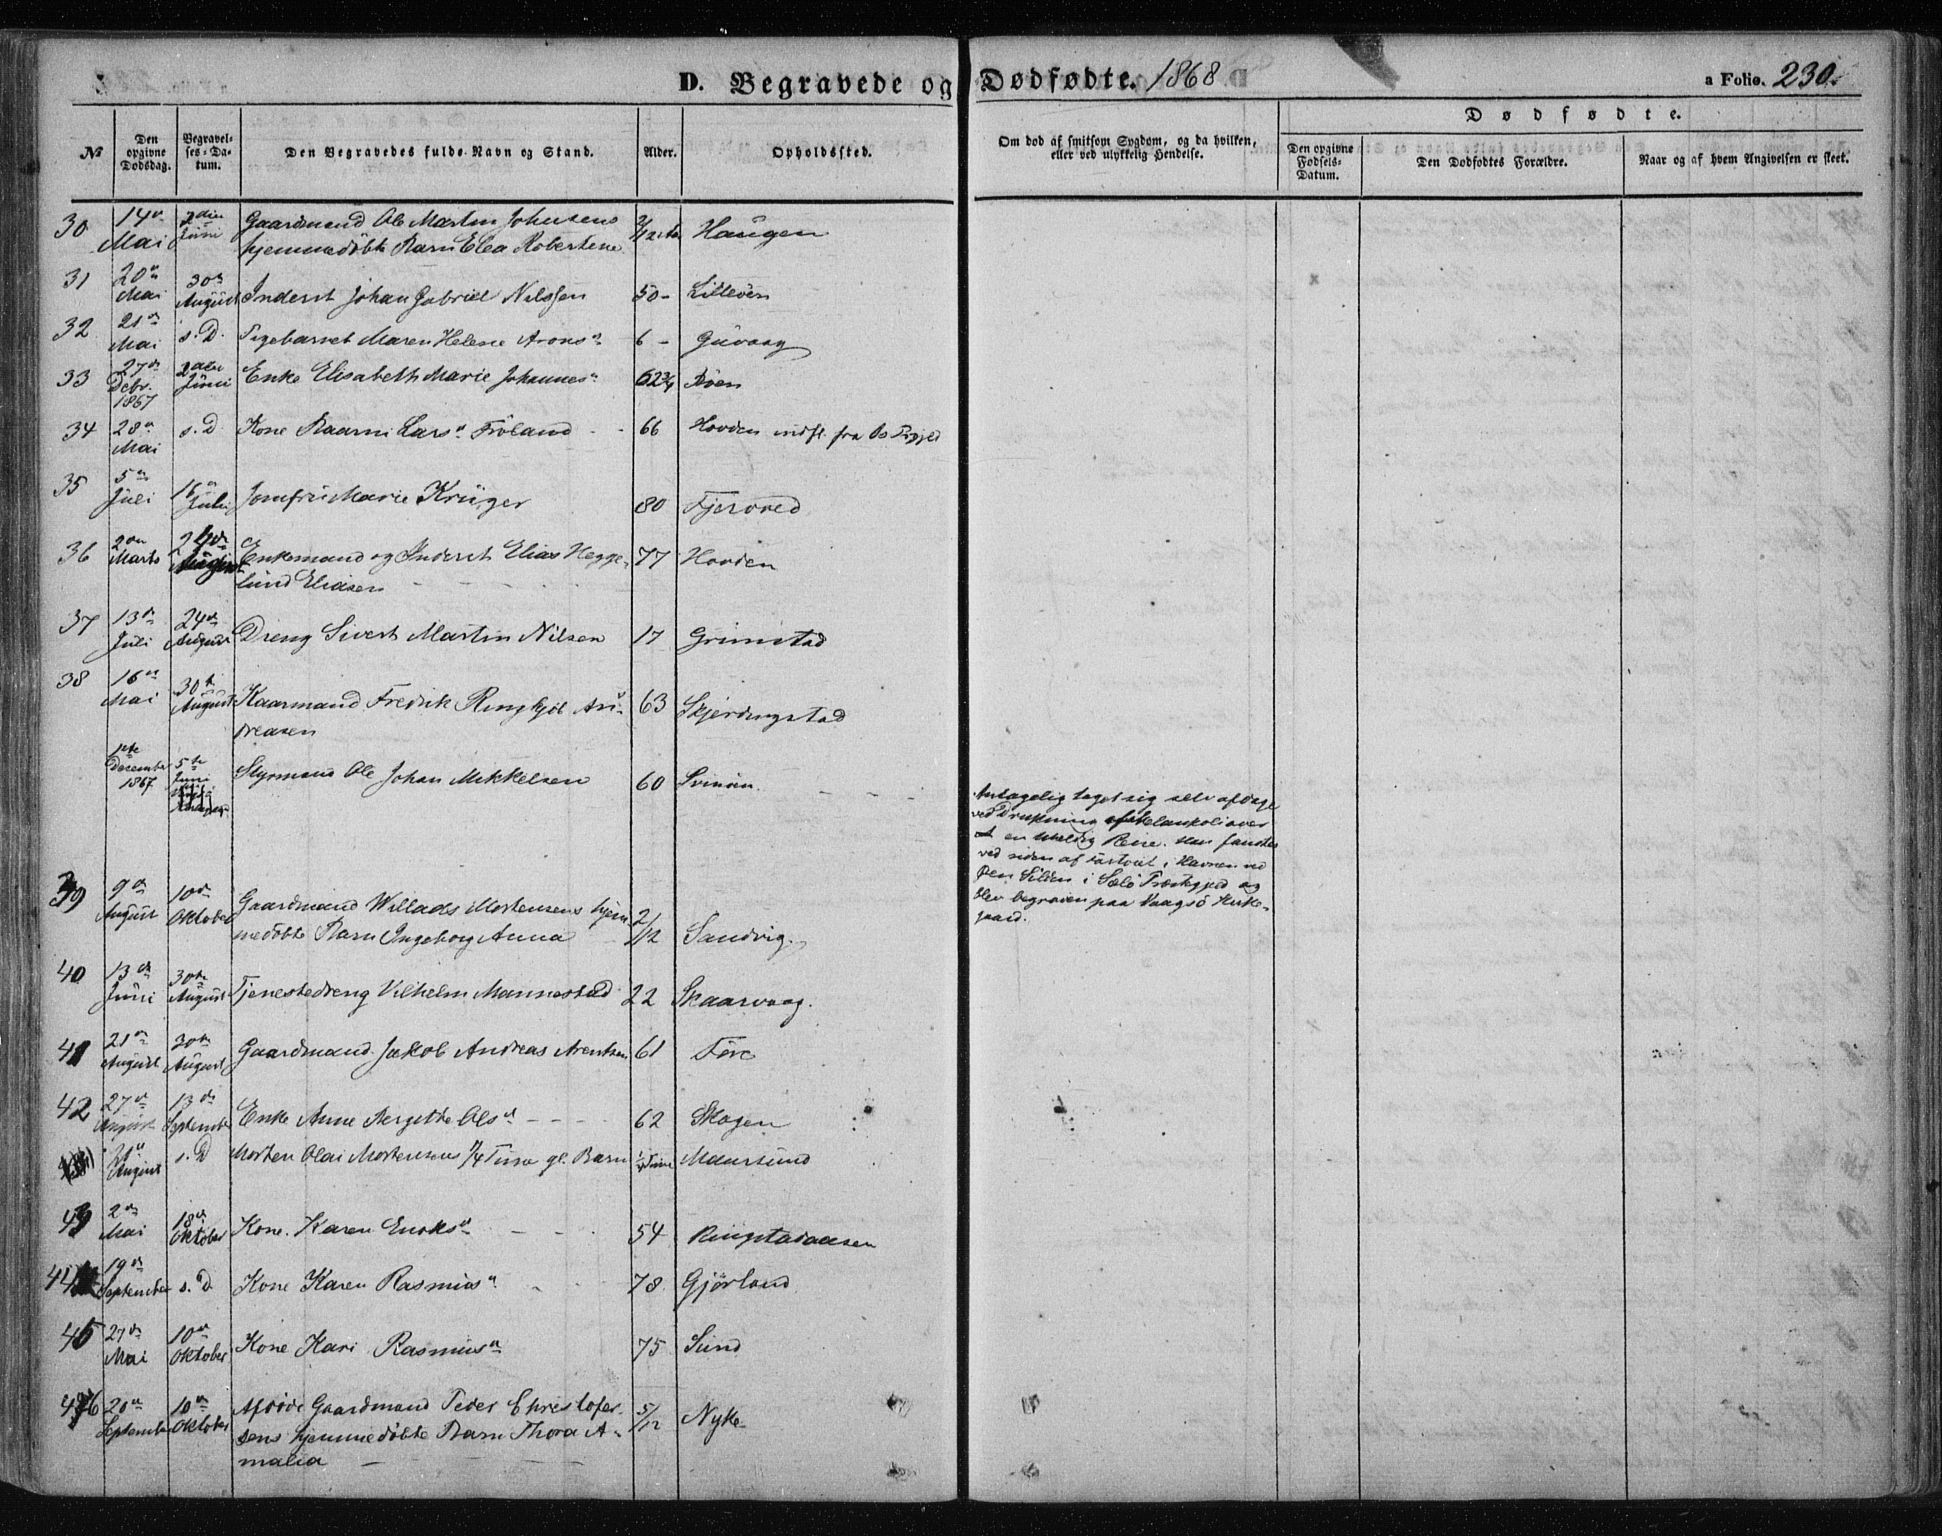 D. Begravede og Dødfødte. 1868
a Folio. 230.
№
Den opgivne Dødsdag.
Begravelses-Datum.
Den Begravedes fulde Navn og Stand.
Alder.
Opholdssted.
Om død af smitsom Sygdom, og da hvilken, eller ved ulykkelig Hendelse.
Dødfødte.
Den opgivne Fødsels-Datum.
Den Dødfødtes Forældre.
Naar og af hvem Angivelsen er skeet.
30 14de Mai 2den Juni Gaardmand Ole Martin Johnsens 2/12 Haugen
hjemmedöbte Barn Elea Robertene
31 20de Mai 30te August Inderst Johan Gabriel Nilssen 50 - Lilleöen
32 21de Mai s. D. Pigebarnet Maren Helene Aronsd 6 - Guvaag
33 27de Debr. 1867 2den Juni Enke Elisabeth Marie Johannesd 62 3/4 Röen
34 28de Mai s. D. Kone Baarni Larsd Fröland - - 66 Hovden indfl. fra Os Prgjld
35 5te Juli 16de Juli Jomfru Marie Krüger 80 Fjærvold
36 2den Marts 24de August Enkemand og Inderst Elias Hegge- 77 Hovden
lund Eliasen
37 13de Juli 24de August Dreng Sivert Martin Nilsen 17 Grimstad
38 16de Mai 30te August Kaarmand Fredrik Ringkjöb An- 63 Skjerdingstad
dreasen
1ste December 1867 5te Juni Styrmand Ole Johan Mikkelsen 60 Svinöen
Antagelig taget sig selv afdage
ved Drukning af Melankoli over
en uheldig Reise. Han fandtes
ved siden af Fartöiet i Havnen ved
Den Silden i Selö Præstgjed og
blev begraven paa Vaagsö Kirke-
gaard.
39 9de August 10de Oktober Gaardmand Willads Mortensens hjem- 2/12 Sandvig.
medöbte Barn Ingeborg Anna
40 13de Juni 30te August Tjenestedreng Vilhelm Mannestad 22 Skaarvaag.
41 21de August 30te August Gaardmand Jakob Andreas Arentsen 61 Före
42 27de August 13de September Enke Anne Bergitte Olsd - - - - 62 Skogen
31te August s. D Morten Olai Mortensens 1/4 Time gl. Barn 1/4 Time Maursund
43 2den Mai 18de Oktober Kone Karen Enoksd 54 Ringstadaasen
44 19de September s. D Kone Karen Rasmusd 78 Gjörland
45 27de Mai 10de Oktober Kone Kari Rasmusd 75 Sund
46 20de September 10de Oktober Afdöde Gaardmand Peder Christofer- 5/12 Nyke
sens hjemmedöbte Barn Thora A-
malia